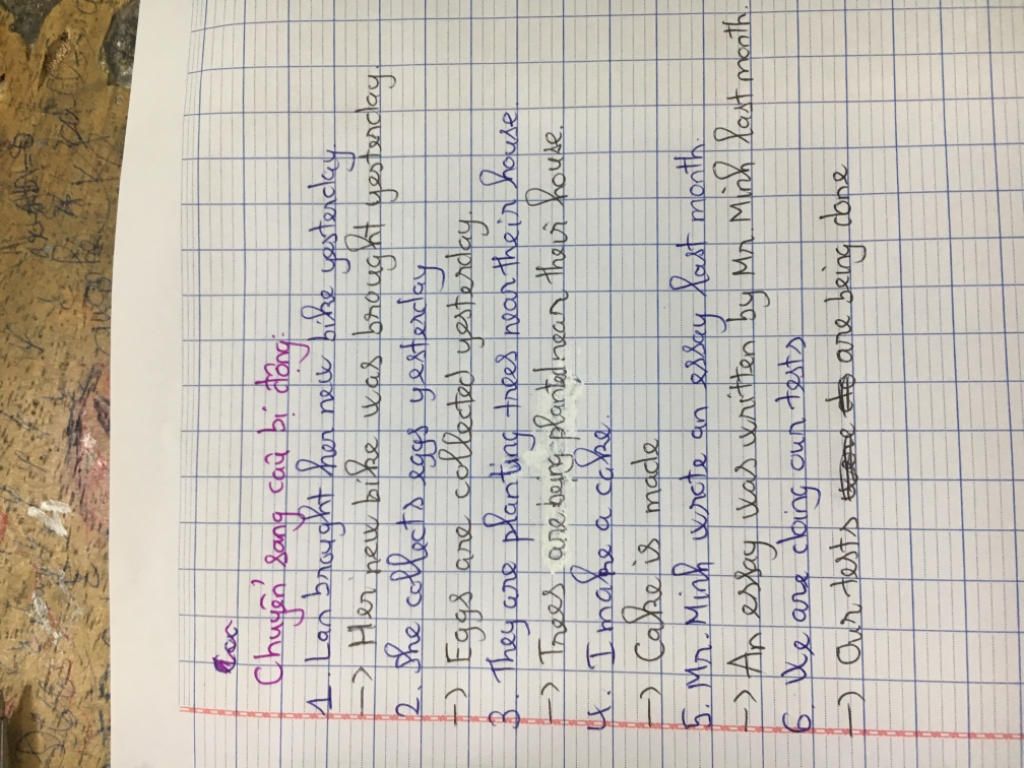 Chuyển sang câu bị động:
1. Lan brought her new bike yesterday
-> Her new bike was brought yesterday.
2. She collects eggs yesterday
-> Eggs are collected yesterday.
3. They are planting trees near their house.
-> Trees are being planted near their house.
4. I make a cake.
-> Cake is made
5. Mr. Minh wrote an essay last month.
-> An essay was written by Mr. Minh last month.
6. We are doing our tests
-> Our tests are being done